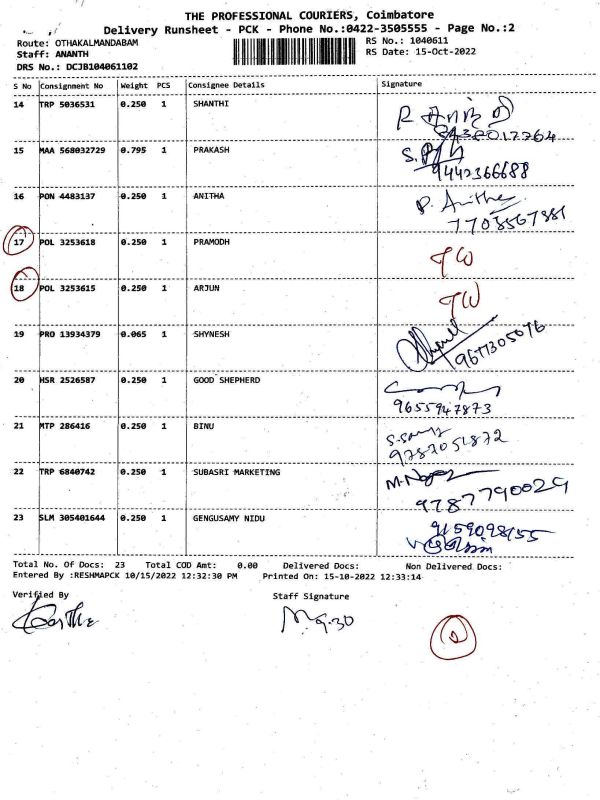 THE PROFESSIONAL COURIERS, Coimbatore
Delivery Runsheet - PCK - Phone No.:0422-3505555 - Page No.:2
Route: OTHAKALMANDABAM RS No.: 1040611
Staff: ANANTH RS Date: 15-Oct-2022
DRS No.: DCJB104061102
S No Consignment No Weight PCS Consignee Details Signature
14 TRP 5036531 0.250 1 SHANTHI
15 MAA 568032729 0.795 1 PRAKASH
9442366688
16 PON 4483137 0.250 1 ANITHA P. Anitha
17 POL 3253618 0.250 1 PRAMODH
18 POL 3253615 0.250 1 ARJUN
19 PRO 13934379 0.065 1 SHYNESH
9677305076
20 HSR 2526587 0.250 1 GOOD SHEPHERD
9655947873
21 MTP 286416 0.250 1 BINU
9787051872
22 TRP 6840742 0.250 1 SUBASRI MARKETING
9787790029
23 SLM 305401644 0.250 1 GENGUSAMY NIDU
9159098155
Total No. Of Docs: 23 Total COD Amt: 0.00 Delivered Docs: Non Delivered Docs:
Entered By :RESHMAPCK 10/15/2022 12:32:30 PM Printed On: 15-10-2022 12:33:14
Verified By Staff Signature